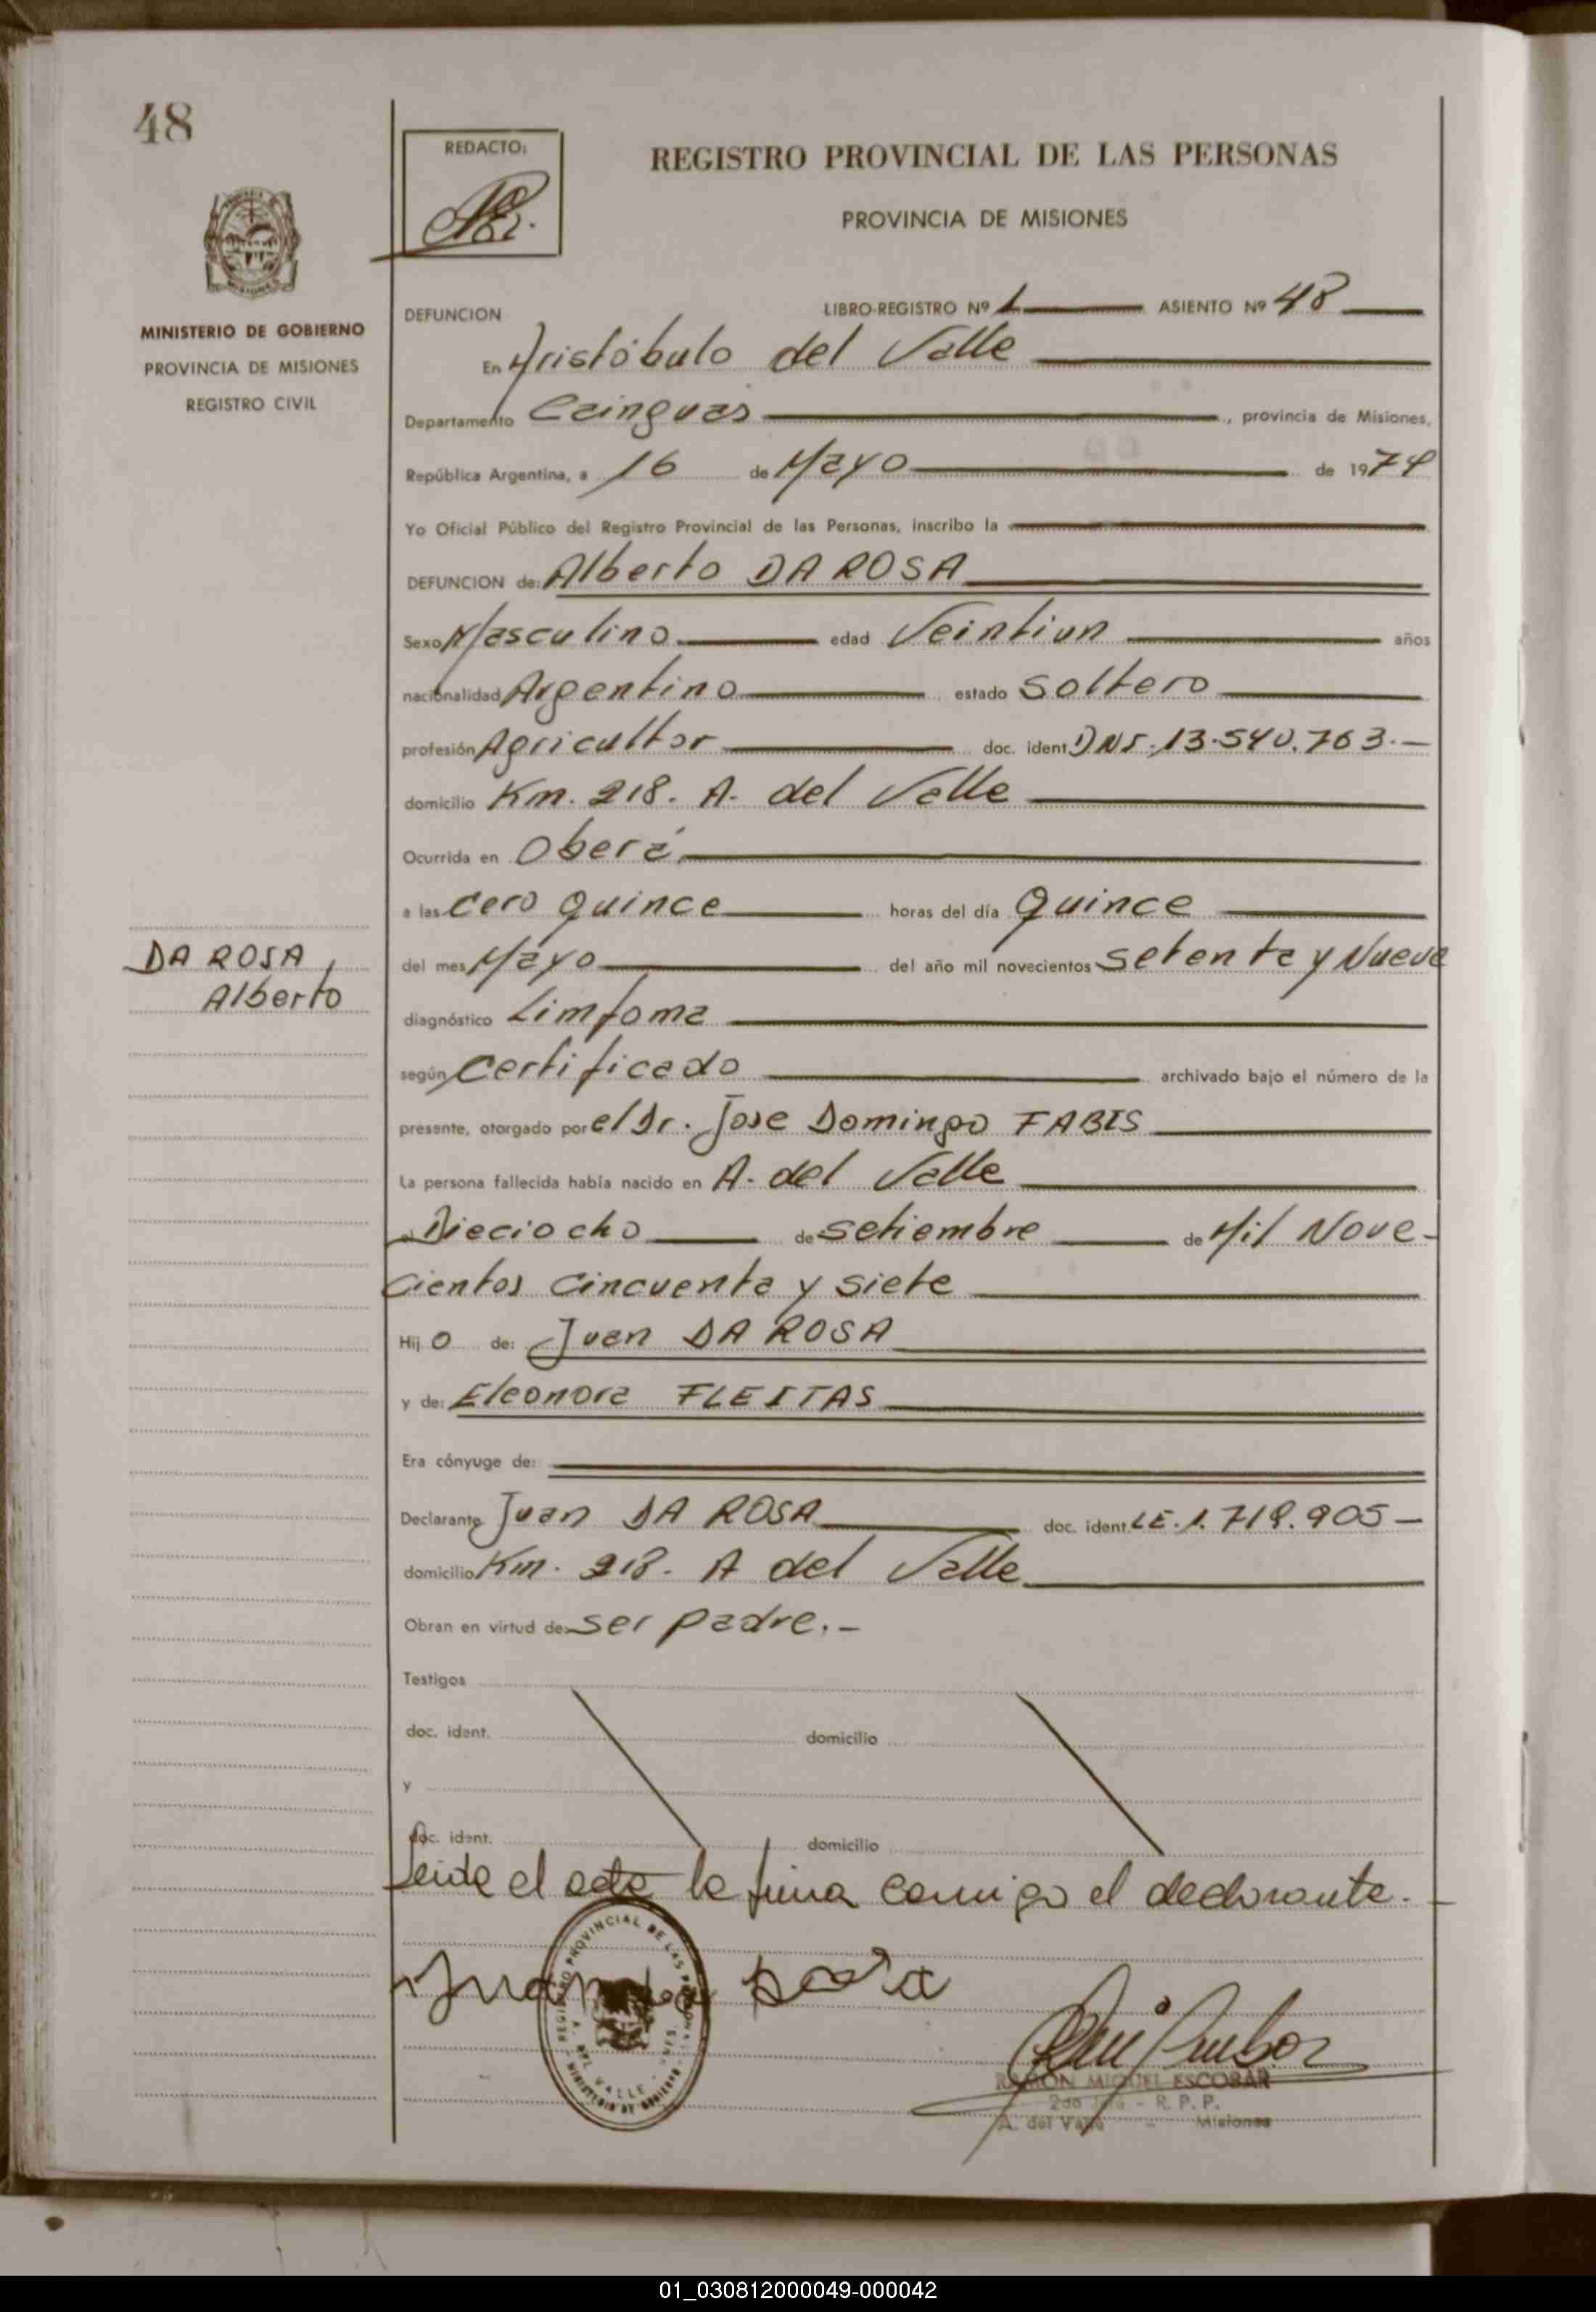 48
REDACTO:
REGISTRO PROVINCIAL DE LAS PERSONAS
PROVINCIA DE MISIONES
MINISTERIO DE GOBIERNO
PROVINCIA DE MISIONES
REGISTRO CIVIL
DEFUNCION LIBRO-REGISTRO Nº 1 ASIENTO Nº 48
En Aristóbulo del Valle
Departamento Cainguas, provincia de Misiones,
República Argentina, a 16 de Mayo de 1979
Yo Oficial Público del Registro Provincial de las Personas, inscribo la
DEFUNCION de: Alberto DA ROSA
Sexo Masculino edad Veintiun años
nacionalidad Argentino estado Soltero
profesión Agricultor doc. ident. DNI. 13.540.763.-
domicilio Km. 218. A. del Valle
Ocurrida en Oberá
a las cero quince horas del día Quince
DA ROSA,
Alberto
del mes Mayo del año mil novecientos Setenta y Nueve
diagnóstico Limfoma
según Certificado archivado bajo el número de la
presente, otorgado por el Dr. Jose Domingo FABIS
La persona fallecida había nacido en A. del Valle
el Dieciocho de Setiembre de Mil Nove-
cientos Cincuenta y Siete
Hij o de: Juan DA ROSA
y de: Eleonora FLEITAS
Era cónyuge de:
Declarante Juan DA ROSA doc. ident. LE. 1.719.905-
domicilio Km. 218. A del Valle
Obran en virtud de: ser padre.-
Testigos
doc. ident. domicilio
y
doc. ident. domicilio
Leida el acta la firma conmigo el declarante.-
Juan da Rosa
REGISTRO PROVINCIAL DE LAS PERSONAS
A. DEL VALLE - MNES.
MINISTERIO DE GOBIERNO
RAMON MIGUEL ESCOBAR
2do Jefe - R. P. P.
A. del Valle - Misiones
01_030812000049-000042